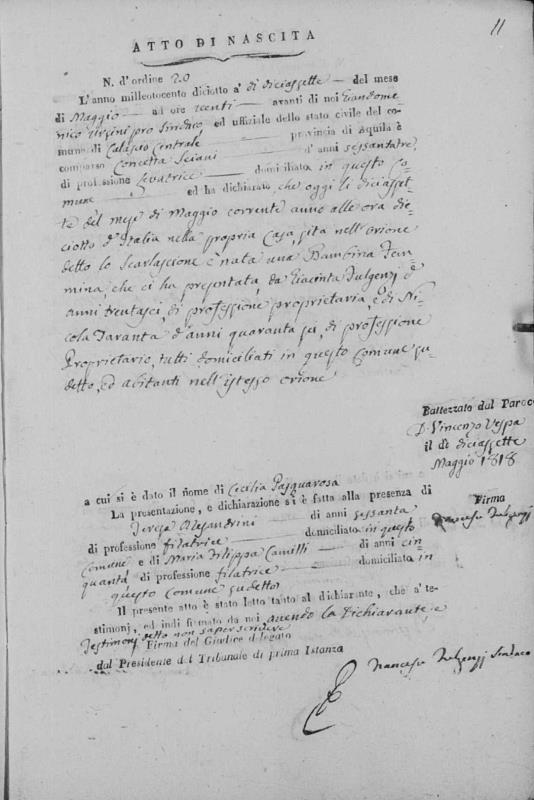 11
ATTO DI NASCITA
N. d'ordine 20
L'anno milleotocento diciotto a' di diciassette del mese
di Maggio ad ore venti avanti di noi Giandome
nico Ursini pro Sindaco ed uffiziale dello stato civile del co-
mune di Calascio Centrale provincia di Aquila è
comparso Concetta Sciani d'anni sessantatre
di professione Levatrice domiciliato in questo Co
mune ed ha dichiarato, che oggi li diciasset-
te del mese di Maggio corrente anno alle ora die-
ciotto d'Italia nella propria Casa sita nell'orione
detto lo Scarlascione è nata una Bambina Fem-
mina, che ci ha presentata, da Giacinta Fulgenzj d'
anni trentasei, di professione proprietaria, e di Ni-
cola Taranta d'anni quaranta sei, di professione
Proprietario, tutti domiciliati in questo Comune su-
detto, ed abitanti nell'istesso orione
Battezzato dal Paroco
D. Vincenzo Vespa
il dì diciassette
Maggio 1818
a cui si è dato il nome di Cecilia Pasquarosa
La presentazione, e dichiarazione si è fatta alla presenza di
Teresa Alesandrini di anni sessanta
di professione filatrice domiciliato in questo
Comune e di Maria Filippa Camilli di anni cin
quanta di professione filatrice domiciliato in
questo Comune sudetto
Firma
Francesco Fulgenzj
Il presente atto è stato letto tanto al dichiarante, che a' te-
stimonj, ed indi firmato da noi avendo la Dichiarante, e
Testimonj detto non saper scrivere
Firma del Giudice delegato
dal Presidente del Tribunale di prima Istanza
Francesco Fulgenzj Sindaco